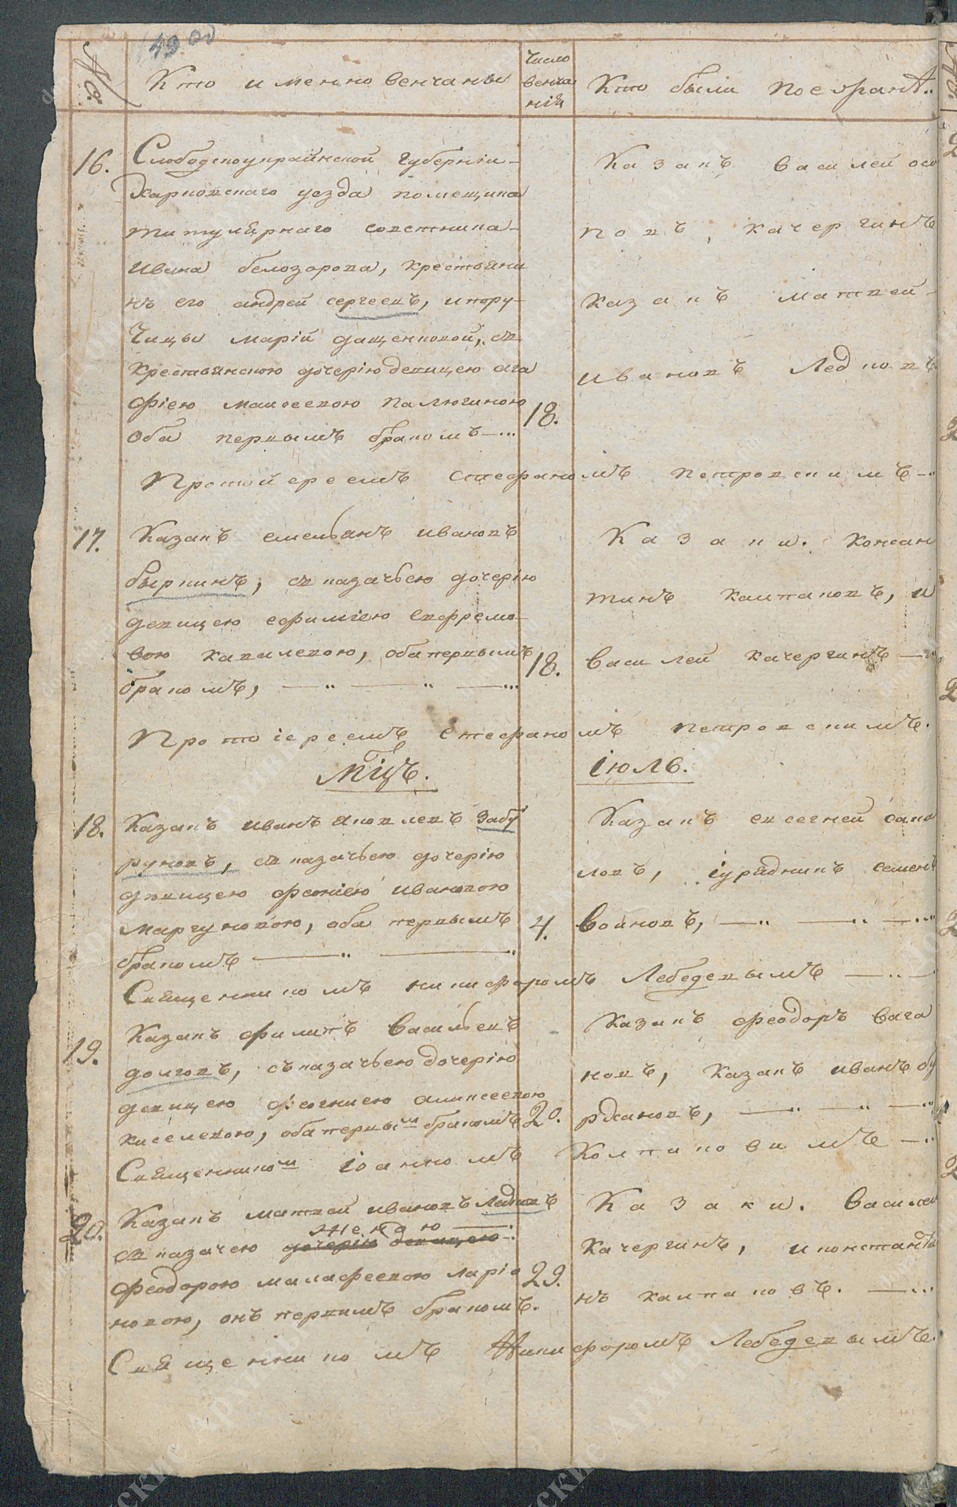 №.
Кто именно венчаны
Число венчаній
Кто были поезжанѣ..
16.
Слободскоукраинской губерніи
Харковскаго уезда помещика
титулярнаго советника
Ивана белозорова, крестьяни
нъ его андрей сергеевъ, и пору-
чицы Марій дащенковой, съ
крестьянскою дочерію девицею ага
фіею моисеевою палюгиною
оба первымъ бракомъ
18.
Казакъ василей оси
повъ, качергинъ
казакъ матвей
ивановъ Ледновъ
Протойереемъ Стефаномъ петровскимъ
17.
Казакъ емельянъ ивановъ
быркинъ, съ казачьею дочерію
девицею ефиміею ефремо
вою кавалевою, оба первымъ
бракомъ,
18.
Казаки. констан
тинъ колпаковъ, и
василей качергинъ
Протоіереемъ стефаномъ петровскимъ.
Мцъ. іюль.
18.
Казакъ иванъ яковлевъ забу
руновъ, съ казачьею дочерію
девицею фотіею ивановою
моргуновою, оба первымъ
бракомъ
4.
Казакъ евсегней сапо
ловъ, іурядникъ семенъ
войновъ,
Священникомъ никифоромъ Лебедевымъ
19.
Казакъ филипъ васильевъ
долговъ, съ казачьею дочерію
девицею феогниею алексеевою
киселевою, оба первым бракомъ
20.
Казакъ феодоръ вага
новъ, казакъ иванъ бу
рдановъ,
Священником іоанномъ Колпаковимъ
20.
Казакъ матвей ивановъ Ледновъ
женою
съ казачею дочерію девицею
феодорою малафеевою ларіо
новою, онъ первимъ бракомъ.
29.
Казаки. василей
Качергинъ, и константи
нъ калпаковъ.
Священникомъ Никифоромъ Лебедевымъ.